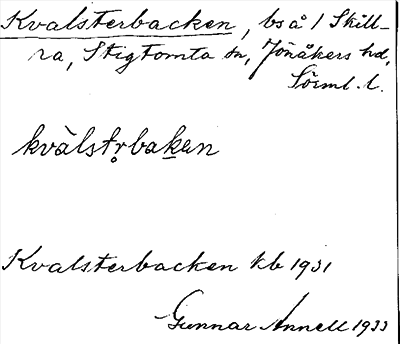 Kvalsterbacken, bs å / Skill-
ra, Stigtomta sn, Jönåkers hd,
Sörml. l.
kvàlstr̥baken
Kvalsterbacken kb 1931
Gunnar Annell 1933